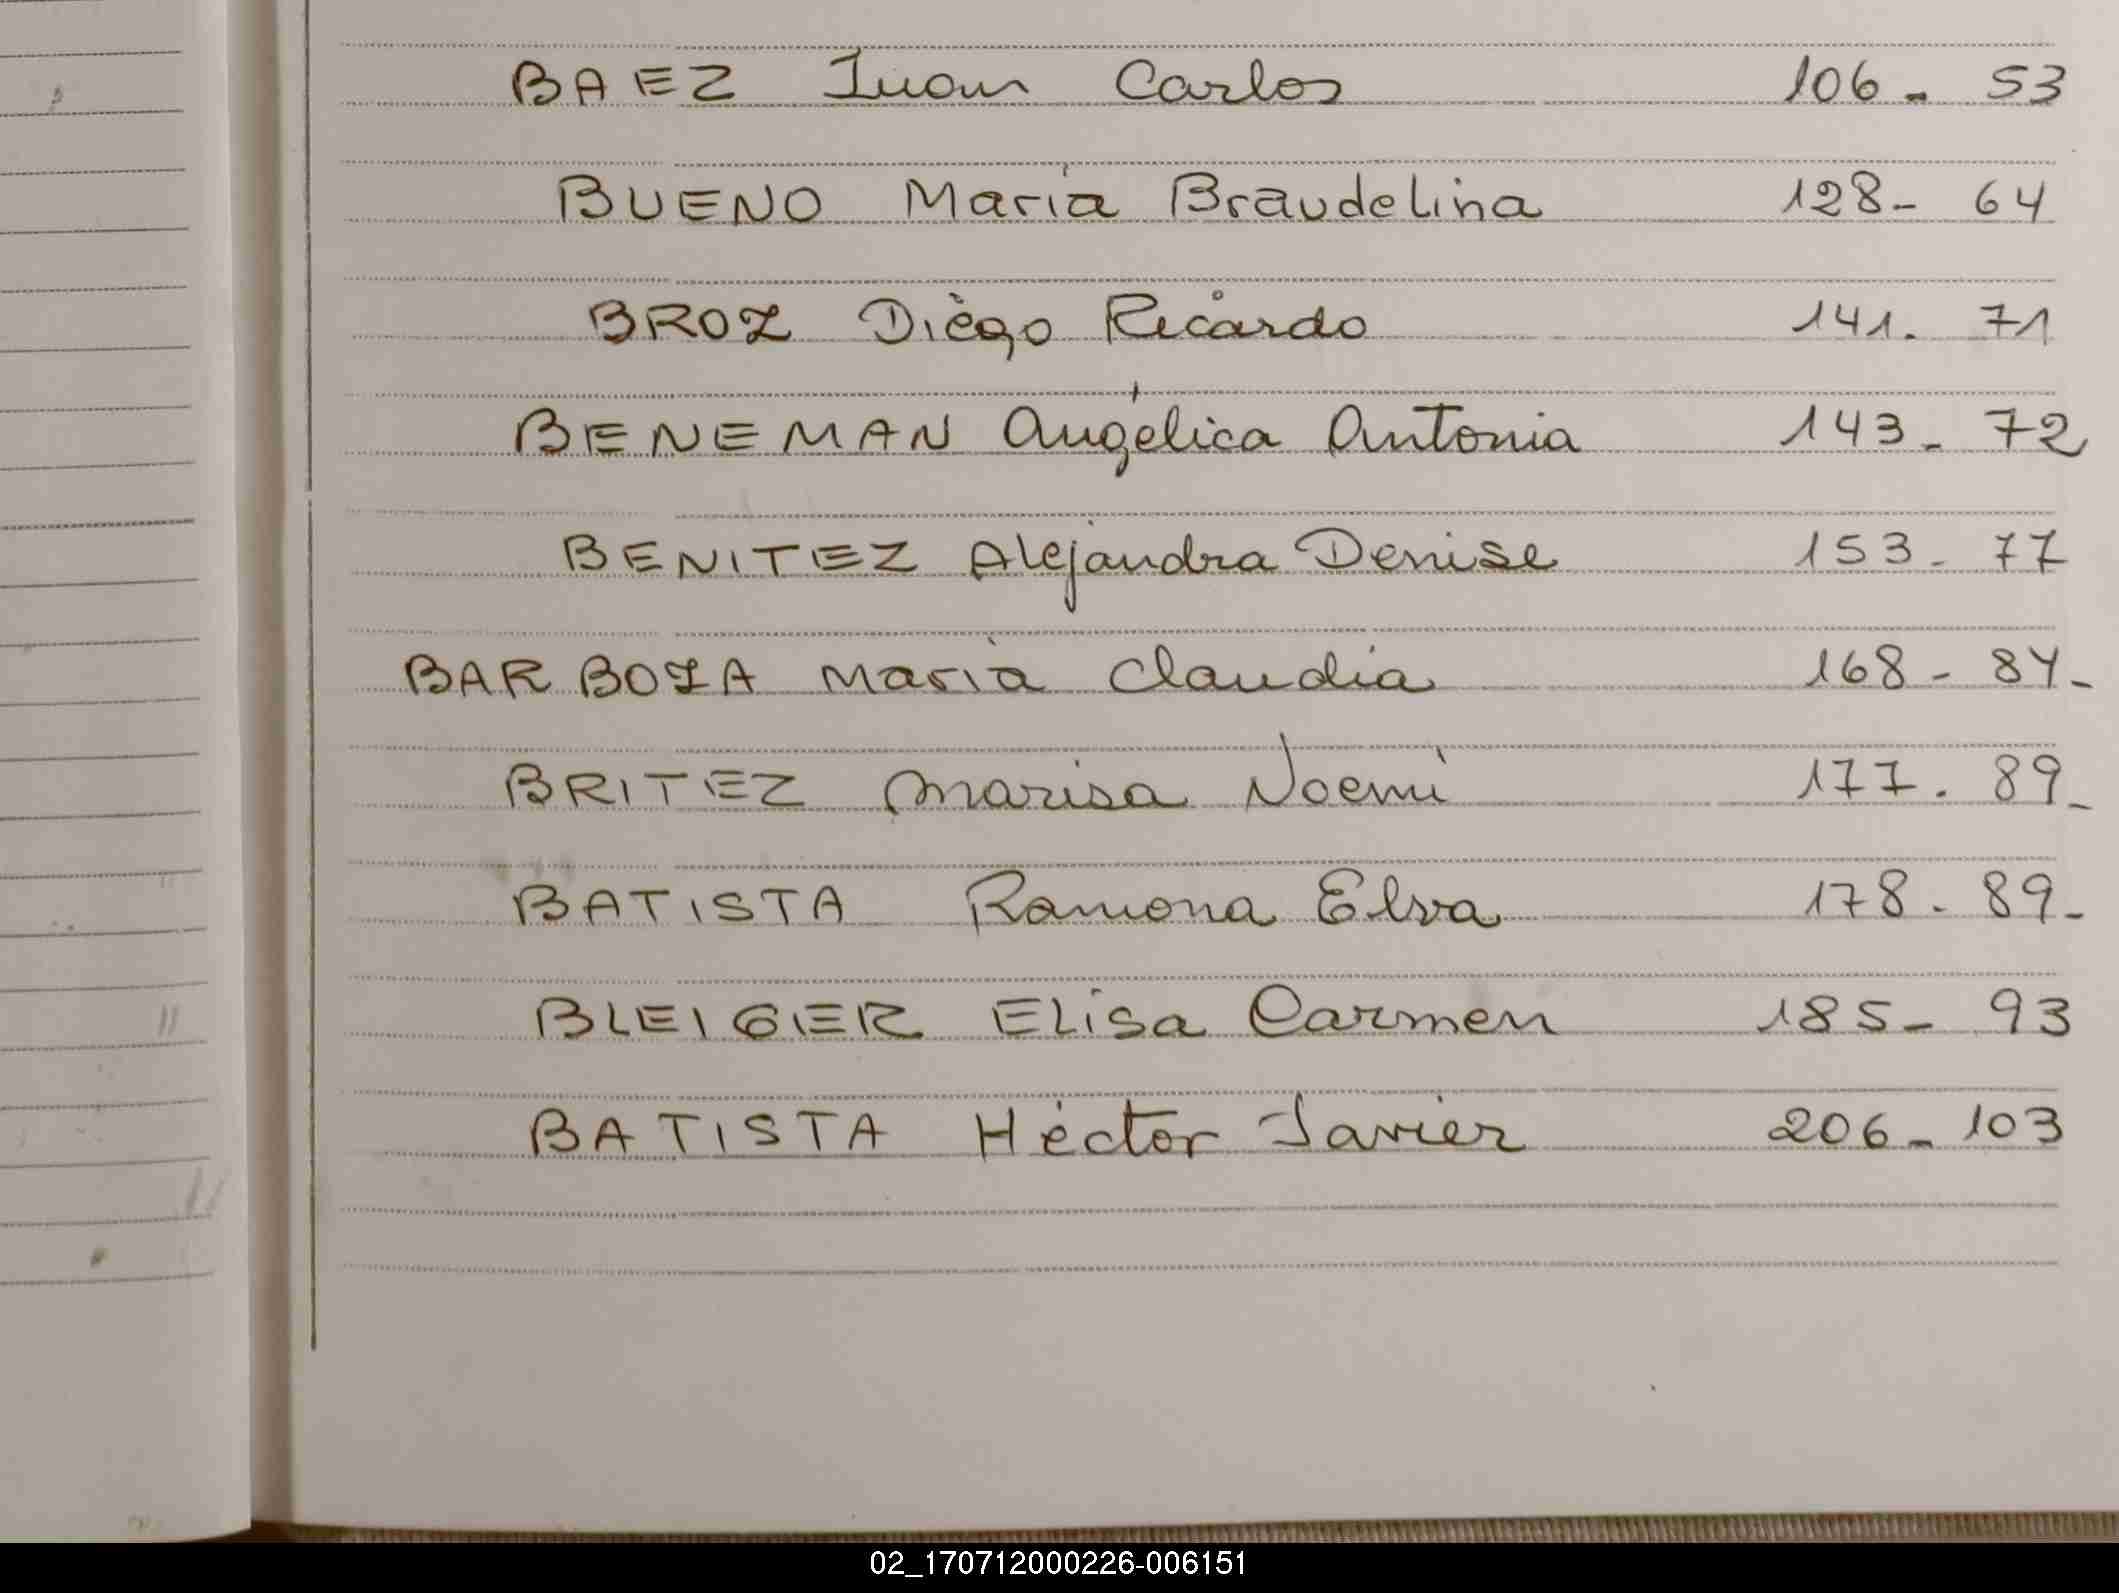 BAEZ Juan Carlos 106 - 53
BUENO María Braudelina 128 - 64
BROZ Diego Ricardo 141. 71
BENEMAN Angélica Antonia 143 - 72
BENITEZ Alejandra Denise 153 - 77
BARBOZA María Claudia 168 - 84 -
BRITEZ Marisa Noemí 177. 89 -
BATISTA Ramona Elva 178 - 89 -
BLEIGER Elisa Carmen 185 - 93
BATISTA Héctor Javier 206 - 103
02_170712000226-006151